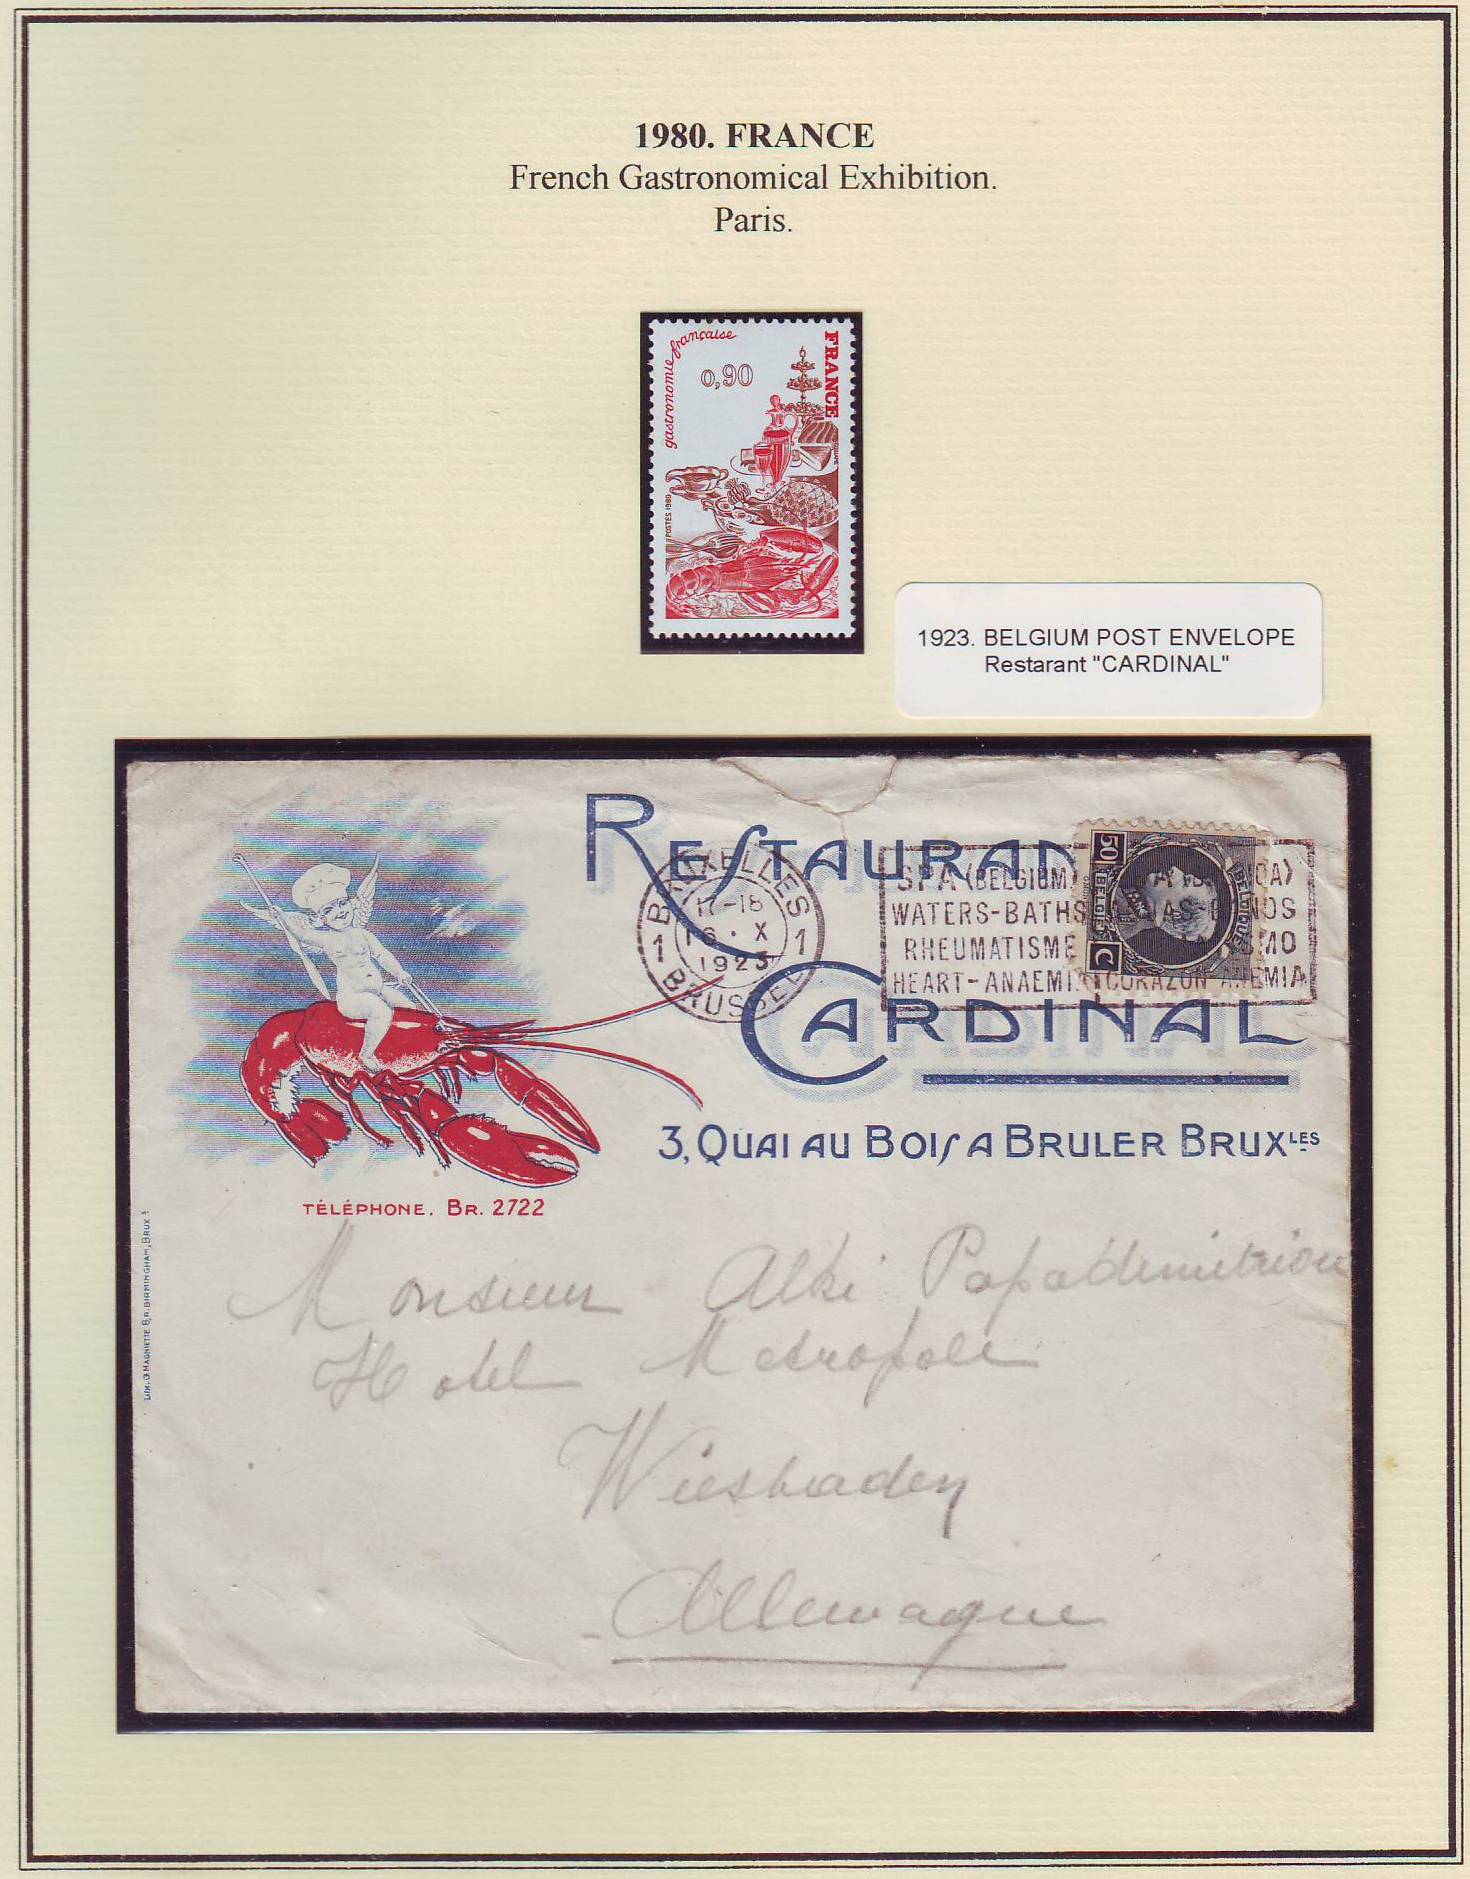 1980. FRANCE
French Gastronomical Exhibition.
Paris.
gastronomie française
FRANCE
0,90
POSTES 1980
1923. BELGIUM POST ENVELOPE
Restarant "CARDINAL"
RESTAURAN
CARDINAL
3, QUAI AU BOIS A BRULER BRUXLES
BRUXELLES
17-18
6 · X
1923
1 1
BRUSSEL
SPA (BELGIUM)
WATERS-BATHS
RHEUMATISME
HEART-ANAEMI
CORAZON-ANEMIA
50
C
BELGIQUE
BELGIE
TÉLÉPHONE. BR. 2722
LITH. O. MAGNIETTE 8, R. BIRMINGHAM, BRUX
Monsieur Alki Papademetriou
Hotel Metropole
Wiesbaden
Allemagne